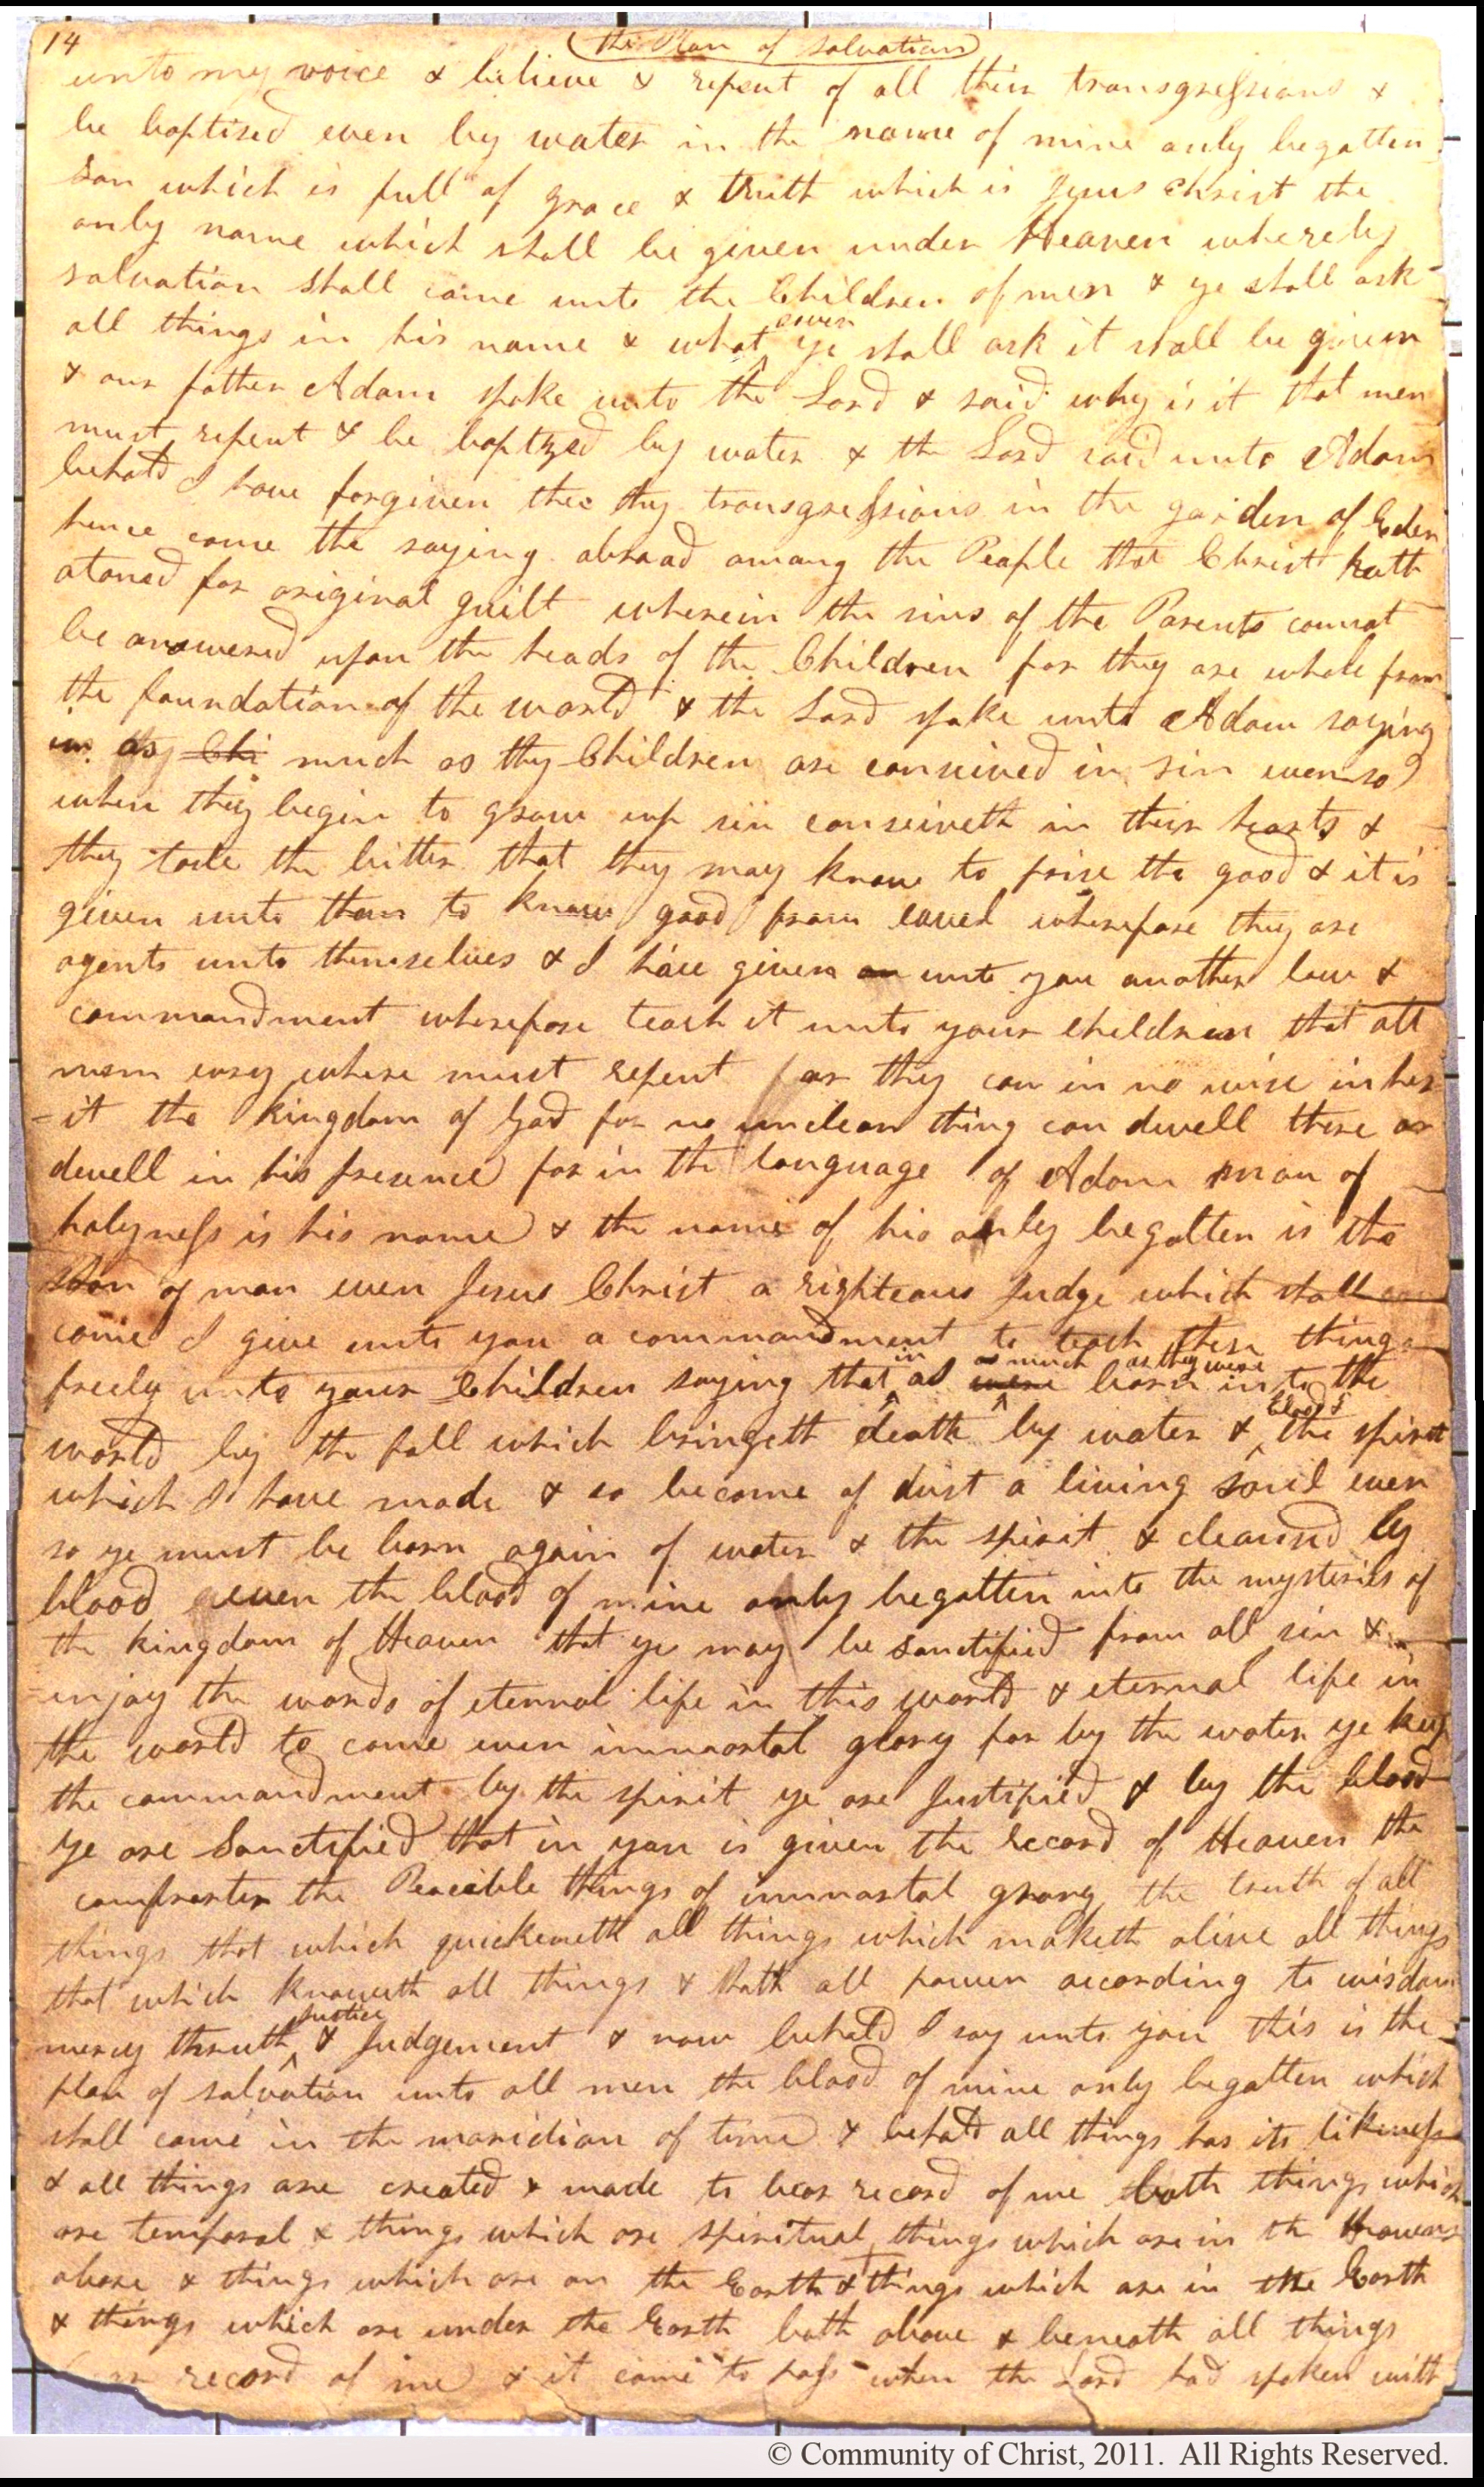 14 The Plan of Salvation
unto my voice & believe & repent of all thir transgressions &
be baptised even by water in the name of mine only begotten
son which is full of grace & truth which is Jesus Christ the
only name which shall be given under Heaven whereby
salvation shall come unto the Children of men & ye shall ask
all things in his name & what soever ye shall ask it shall be given
& our father Adam spoke unto the Lord & said why is it that men
must repent & be baptzed by water & the Lord said unto Adam
behold I have forgiven thee thy transgressions in the garden of Eden
hence came the saying abroad among the People that Christ hath
atoned for original guilt wherein the sins of the Parents cannot
be answered upon the heads of the Children for they are whole from
the foundation of the world & the Lord spake unto Adam saying
in as Chi much as thy Children are conceived in sin even so
when they begin to grow up sin conseiveth in their hearts &
they taste the bitter that they may know to prise the good & it is
given unto them to know good from evel wherefore they are
agents unto themselves & I have given an unto you another law &
commandment wherefore teach it unto your children that all
men evry where must repent for they can in no wise inher
-it the kingdom of God for no unclean thing can dwell there or
dwell in his presence for in the language of Adam man of
holyness is his name & the name of his only begotten is the
Son of man even Jesus Christ a righteous Judge which shall
come I give unto you a commandment to teach these things
freely unto your Children saying that in as much were as they were born in to the
world by the fall which bringeth death by water & blood & the spirit
which I have made & so become of dust a living soul even
so ye must be born again of water & the spirit & cleansed by
blood even the blood of mine only begotten into the mysteries of
the kingdom of Heaven that ye may be sanctified from all sin &
enjoy the words of eternal life in this world & eternal life in
the world to come even immortal glory for by the water ye keep
the commandment by the spirit ye are Justified & by the blood
ye are Sanctified that in you is given the record of Heaven the
comfrorter the Peacible things of immortal grory the truth of all
things that which quickeneth all things which maketh alive all things
that which knoweth all things & hath all power according to wisdom
mercy thruth Justice & Judgement & now behold I say unto you this is the
plan of salvation unto all men the blood of mine only begotten which
shall come in the maridian of time & behold all things has its likeness
& all things are created & made to bear record of me both things which
are temporal & things which are spiritual things which are in the Heavens
above & things which are on the Earth & things which are in the Earth
& things which are under the Earth both above & beneath all things
record of me & it came to pass when the Lord had spoken with
© Community of Christ, 2011. All Rights Reserved.